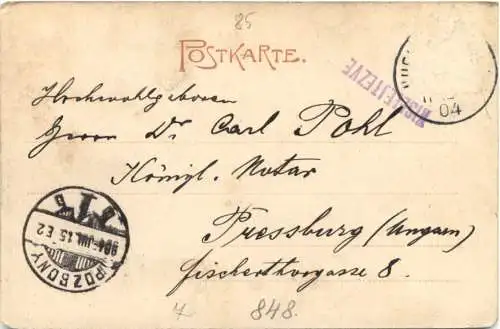 85
POSTKARTE.
VISSZ
04
Hochwohlgeboren
Herrn Dr Carl Pohl
Königl. Notar
Pressburg (Ungarn)
Fischerthorgasse 8.
904 JUL. 15 E2
POZSONY
848.